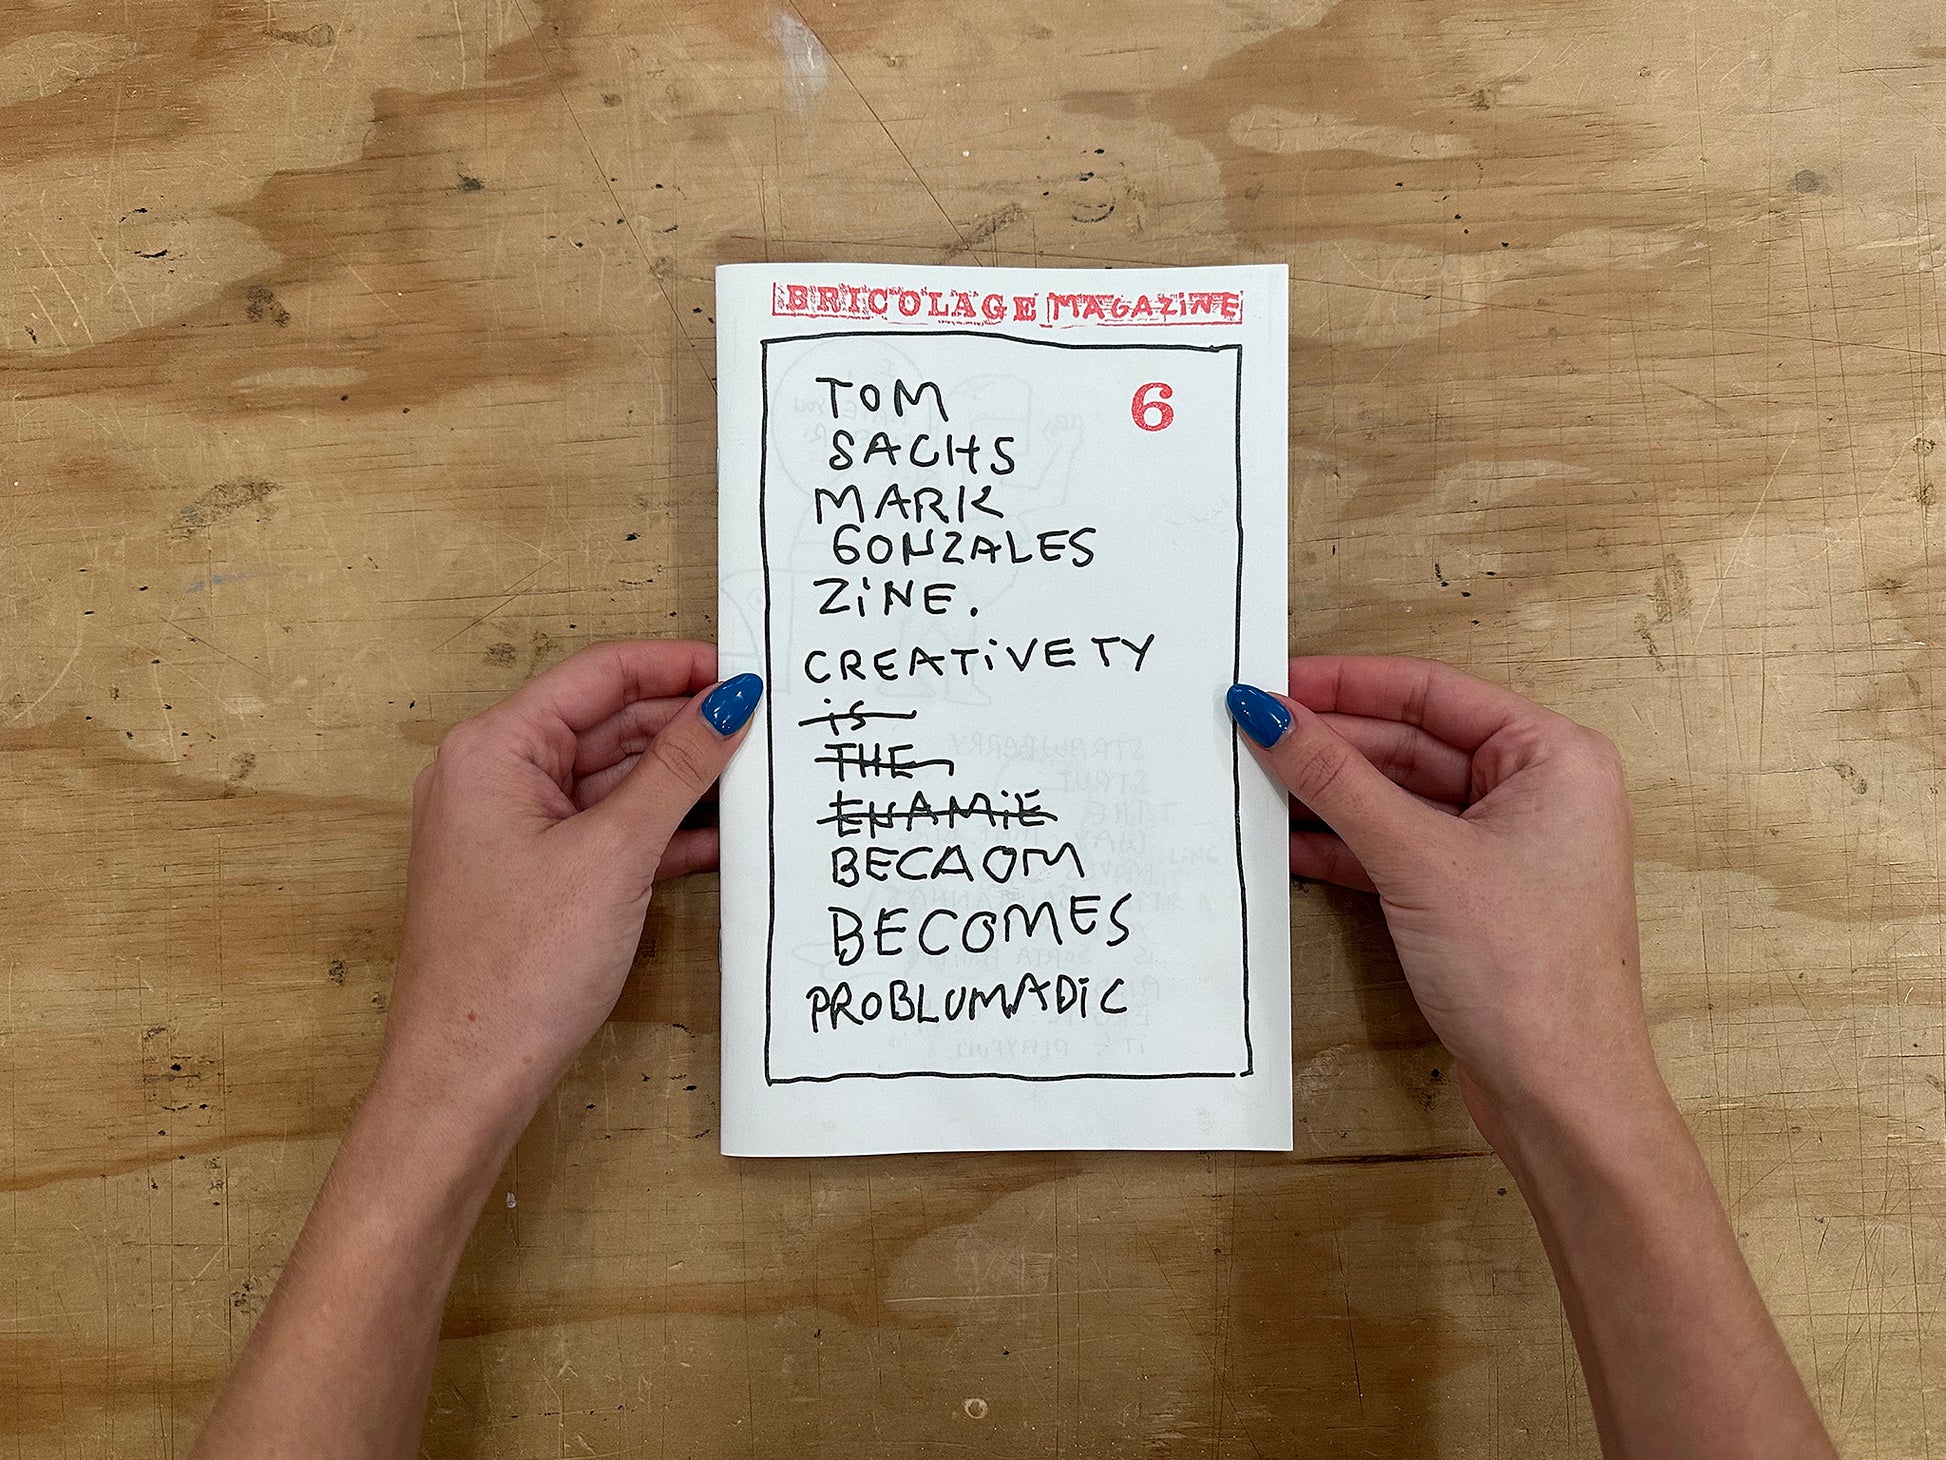 BRICOLAGE MAGAZiNE
6
TOM
SACHS
MARK
GONZALES
ZiNE.
CREATiVETY
iS
THE
ENAMiE
BECAOM
BECOMES
PROBLUMADiC